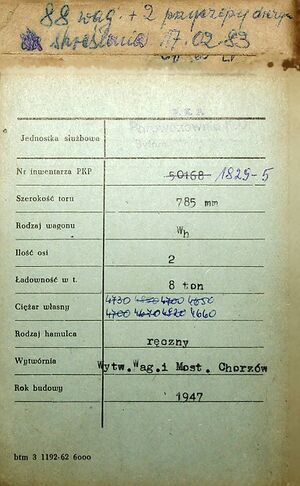 88 wag. + 2 przyczepy
skreślenia 17.02.83
P.K.P.
Parowozownia
Bytom
Jednostka służbowa
Nr inwentarza PKP 50168 1829-5
Szerokość toru 785 mm
Rodzaj wagonu Wh
Ilość osi 2
Ładowność w t. 8 ton
4730 4700 4650
Ciężar własny 4700 4670 4820 4660
Rodzaj hamulca ręczny
Wytwórnia Wytw.Wag.i Most. Chorzów
Rok budowy 1947
btm 3 1192-62 6000